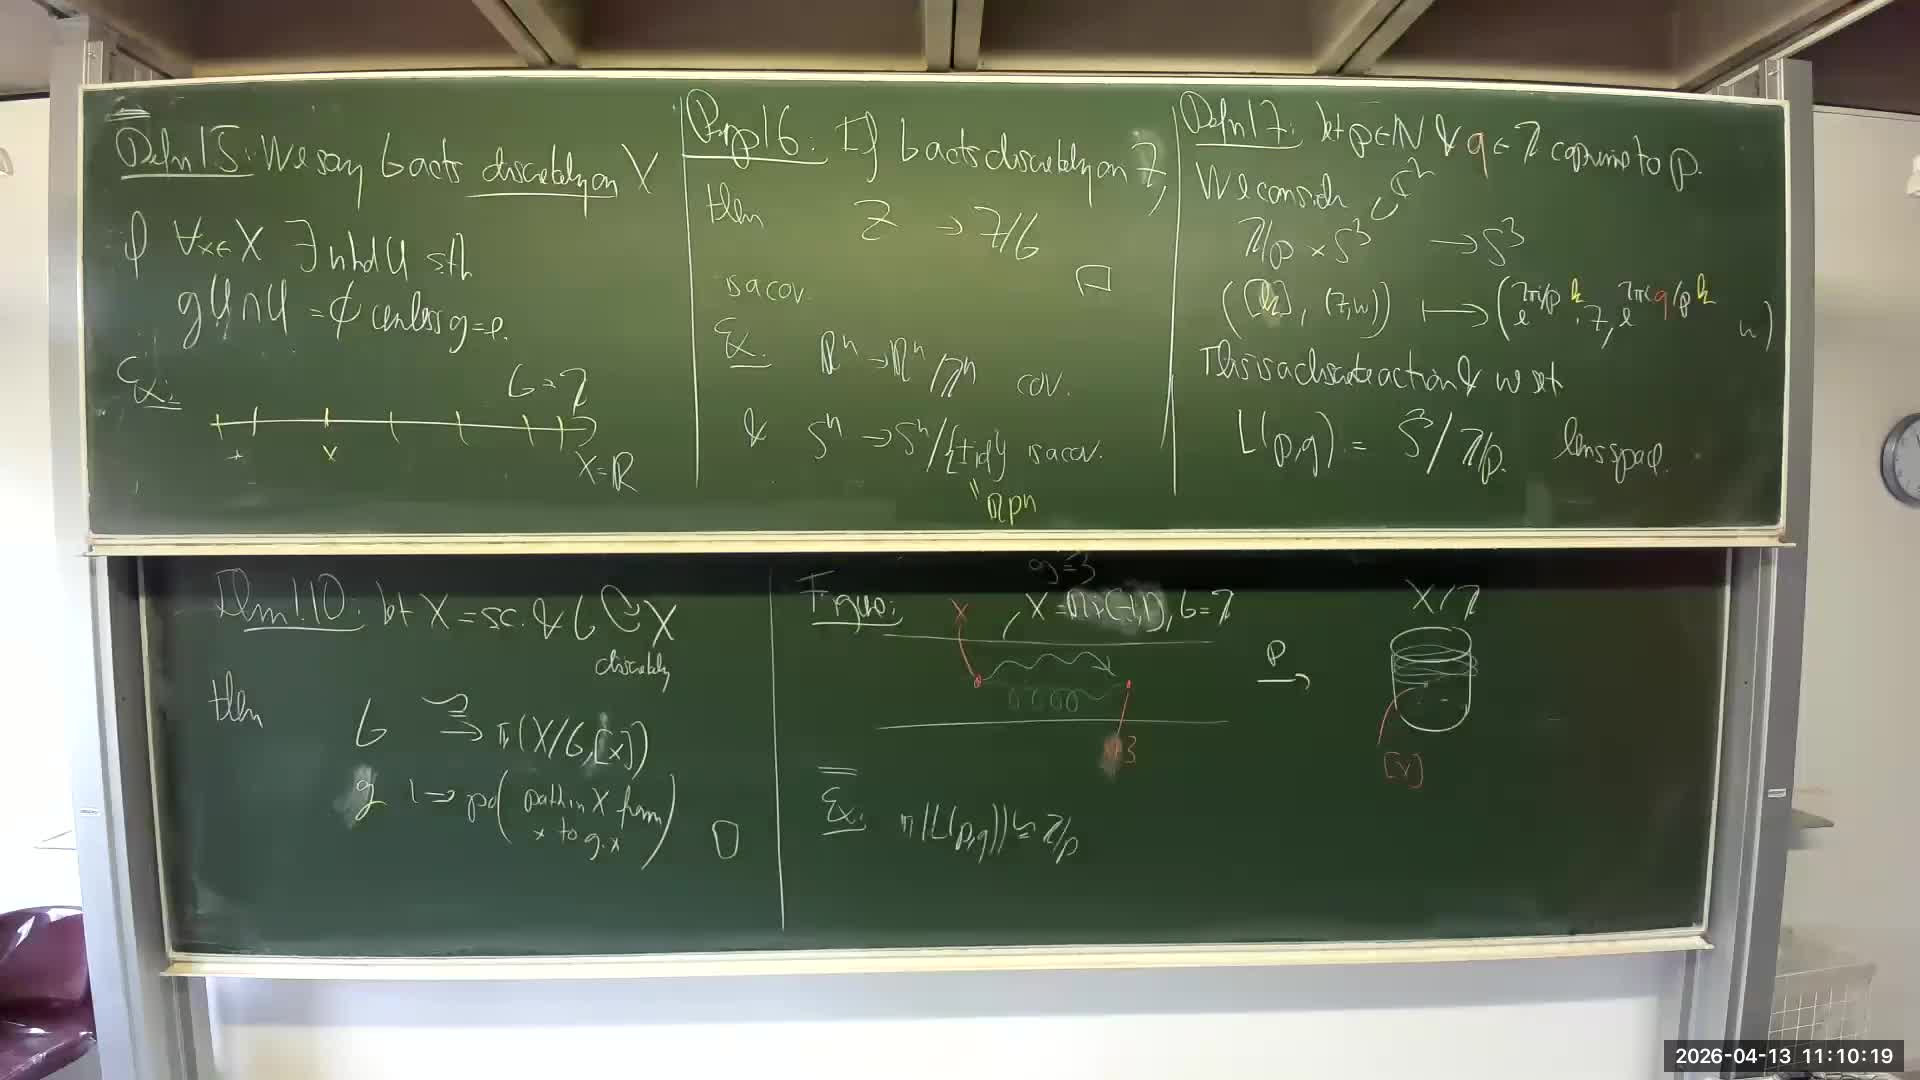 Defn 15: We say G acts discretely on X
if ∀x∈X ∃ nhd U s.th
gU∩U = ∅ unless g=e.
Ex:
G=ℤ
x
X=ℝ
Prop 16: If G acts discretely on Z,
then Z → Z/G
is a cov. □
Ex. ℝⁿ → ℝⁿ/ℤⁿ cov.
& Sⁿ → Sⁿ/{±id} is a cov.
" ℝPⁿ
Defn 17: let p∈ℕ & q∈ℤ coprime to p.
We consider
ℤ/p × S³ → S³
([k], (z,w)) ↦ (e^{2πi/p k}·z, e^{2πi q/p k} w)
This is a discrete action & we set
L(p,q) = S³/ℤ/p. lens space.
Thm 1.10: let X = s.c. & G ↻ X
discretely
then
G → π₁(X/G,[x])
g ↦ p∘(path in X from
x to g·x) □
Figure:
g=3
X = ℝ×(-1,1), G=ℤ
X/ℤ
x
p
+3
[x]
Ex. π₁(L(p,q)) ≅ ℤ/p
2026-04-13 11:10:19